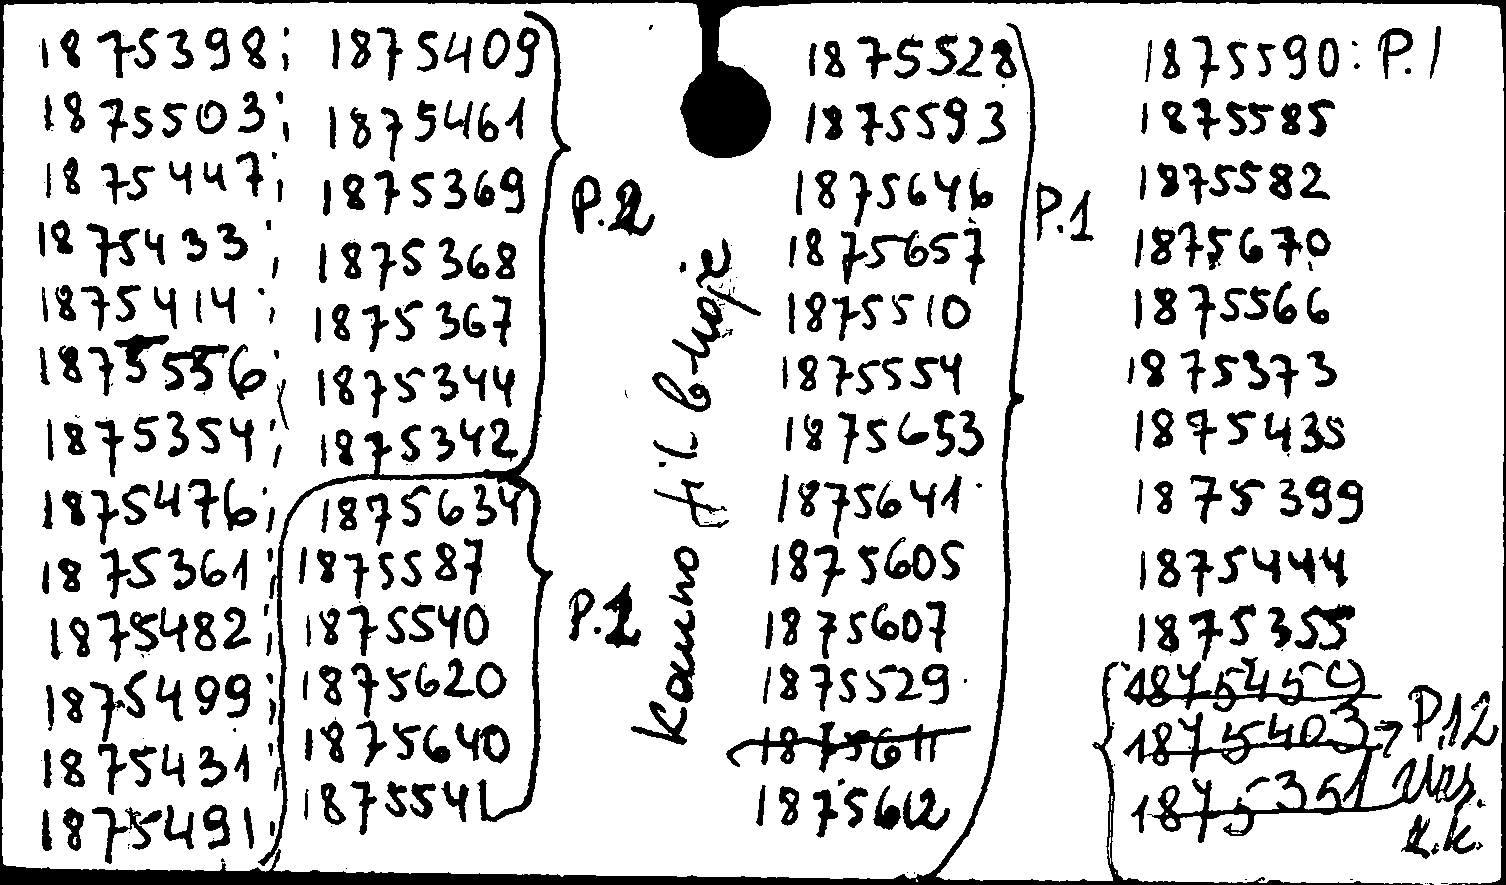 1875398; 1875409
1875503; 1875461
1875447; 1875369
1875433; 1875368
1875414; 1875367
1875556; 1875344
1875354; 1875342
1875476; 1875634
1875361; 1875587
1875482; 1875540
1875499; 1875620
1875431; 1875640
1875491; 1875541
P.2
P.1
1875528
1875593
1875646
1875657
1875510
1875554
1875653
1875641
1875605
1875607
1875529
1875611
1875612
P.1
1875590: P.1
1875585
1875582
1875670
1875566
1875373
1875435
1875399
1875444
1875355
1875459
1875403 P.12
1875351